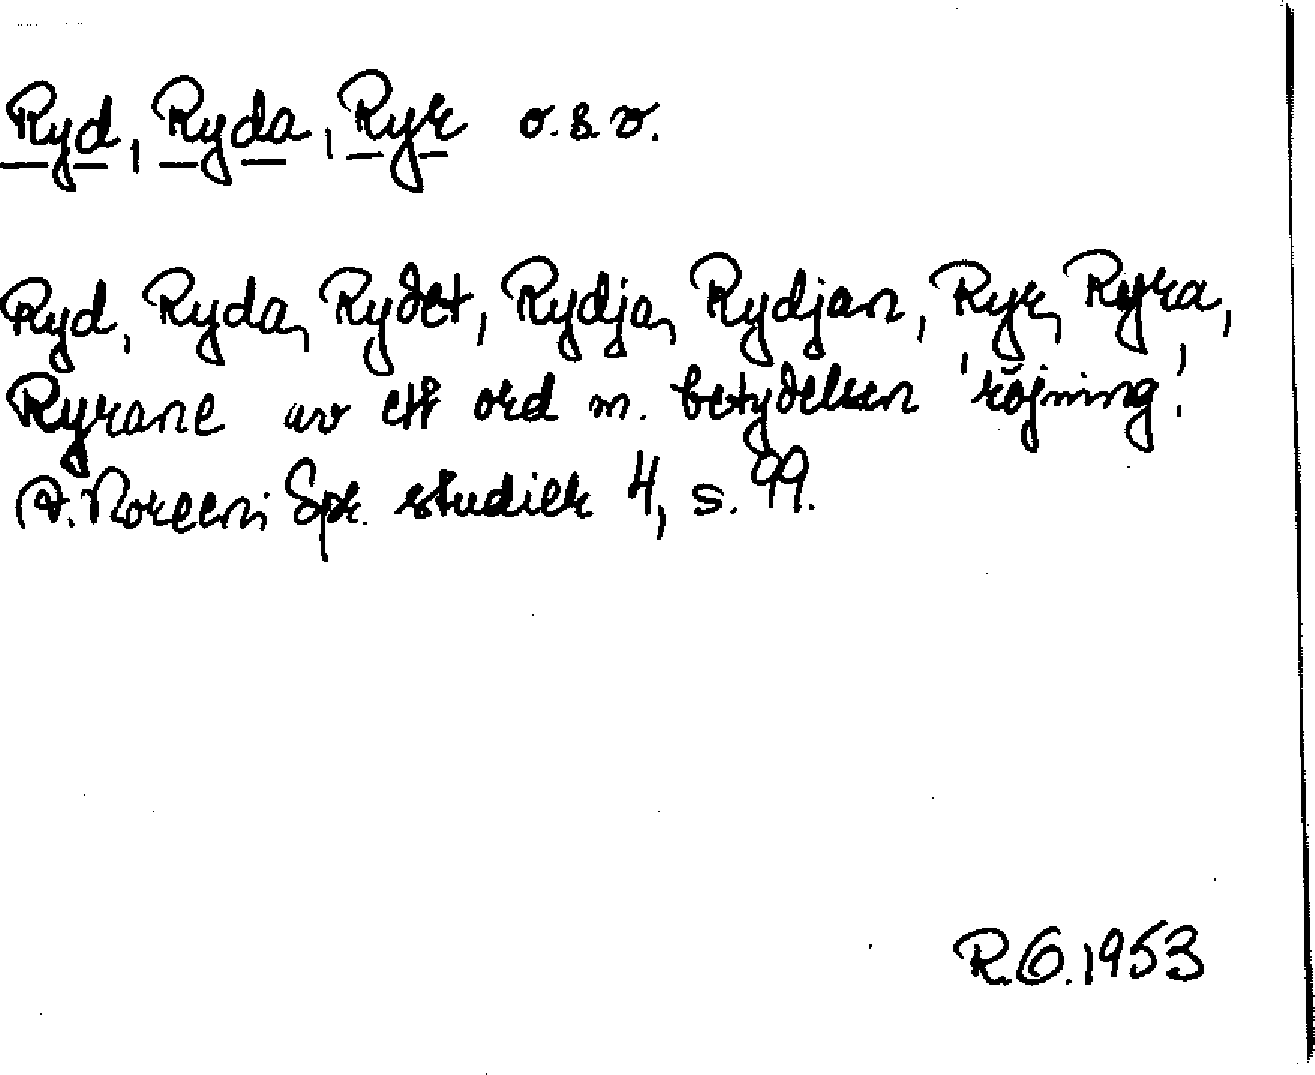 Ryd, Ryda, Ryr o.s.v.
Ryd, Ryda, Rydet, Rydja, Rydjan, Ryr, Ryra,
Ryrane av ett ord m. betydelsen 'röjning'.
A. Noreen i Spr. studier 4, s. 99.
R.G. 1953